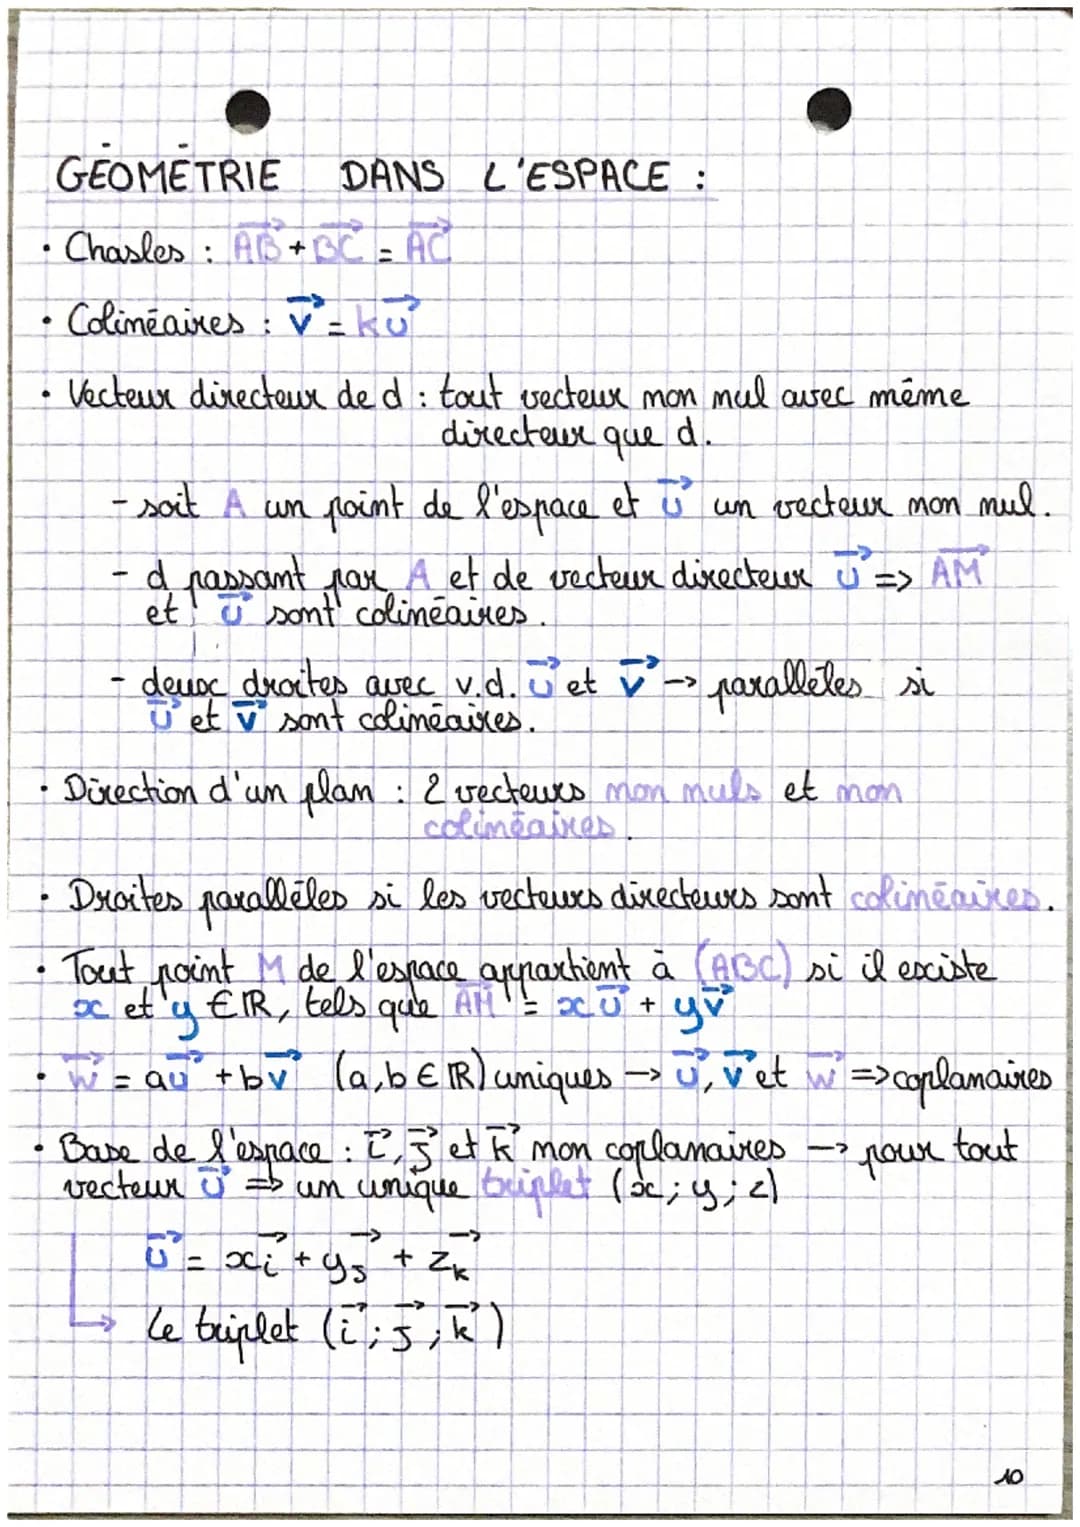 GÉOMÉTRIE DANS L'ESPACE :
• Chasles : \overrightarrow{AB} + \overrightarrow{BC} = \overrightarrow{AC}
• Colinéaires : \vec{v} = k\vec{u}
• Vecteur directeur de d : tout vecteur non nul avec même
directeur que d.
- soit A un point de l'espace et \vec{u} un vecteur non nul.
- d passant par A et de vecteur directeur \vec{u} => \overrightarrow{AM}
et \vec{u} sont colinéaires.
- deux droites avec v.d. \vec{u} et \vec{v} -> parallèles si
\vec{u} et \vec{v} sont colinéaires.
• Direction d'un plan : 2 vecteurs non nuls et non
colinéaires.
• Droites parallèles si les vecteurs directeurs sont colinéaires.
• Tout point M de l'espace appartient à (ABC) si il existe
x et y ∈ ℝ, tels que \overrightarrow{AM} = x\vec{u} + y\vec{v}
• \vec{w} = a\vec{u} + b\vec{v} (a, b ∈ ℝ) uniques -> \vec{u}, \vec{v} et \vec{w} => coplanaires
• Base de l'espace : \vec{i}, \vec{j} et \vec{k} non coplanaires -> pour tout
vecteur \vec{u} => un unique triplet (x ; y ; z)
\vec{u} = x\vec{i} + y\vec{j} + z\vec{k}
-> Le triplet (\vec{i} ; \vec{j} ; \vec{k})
10